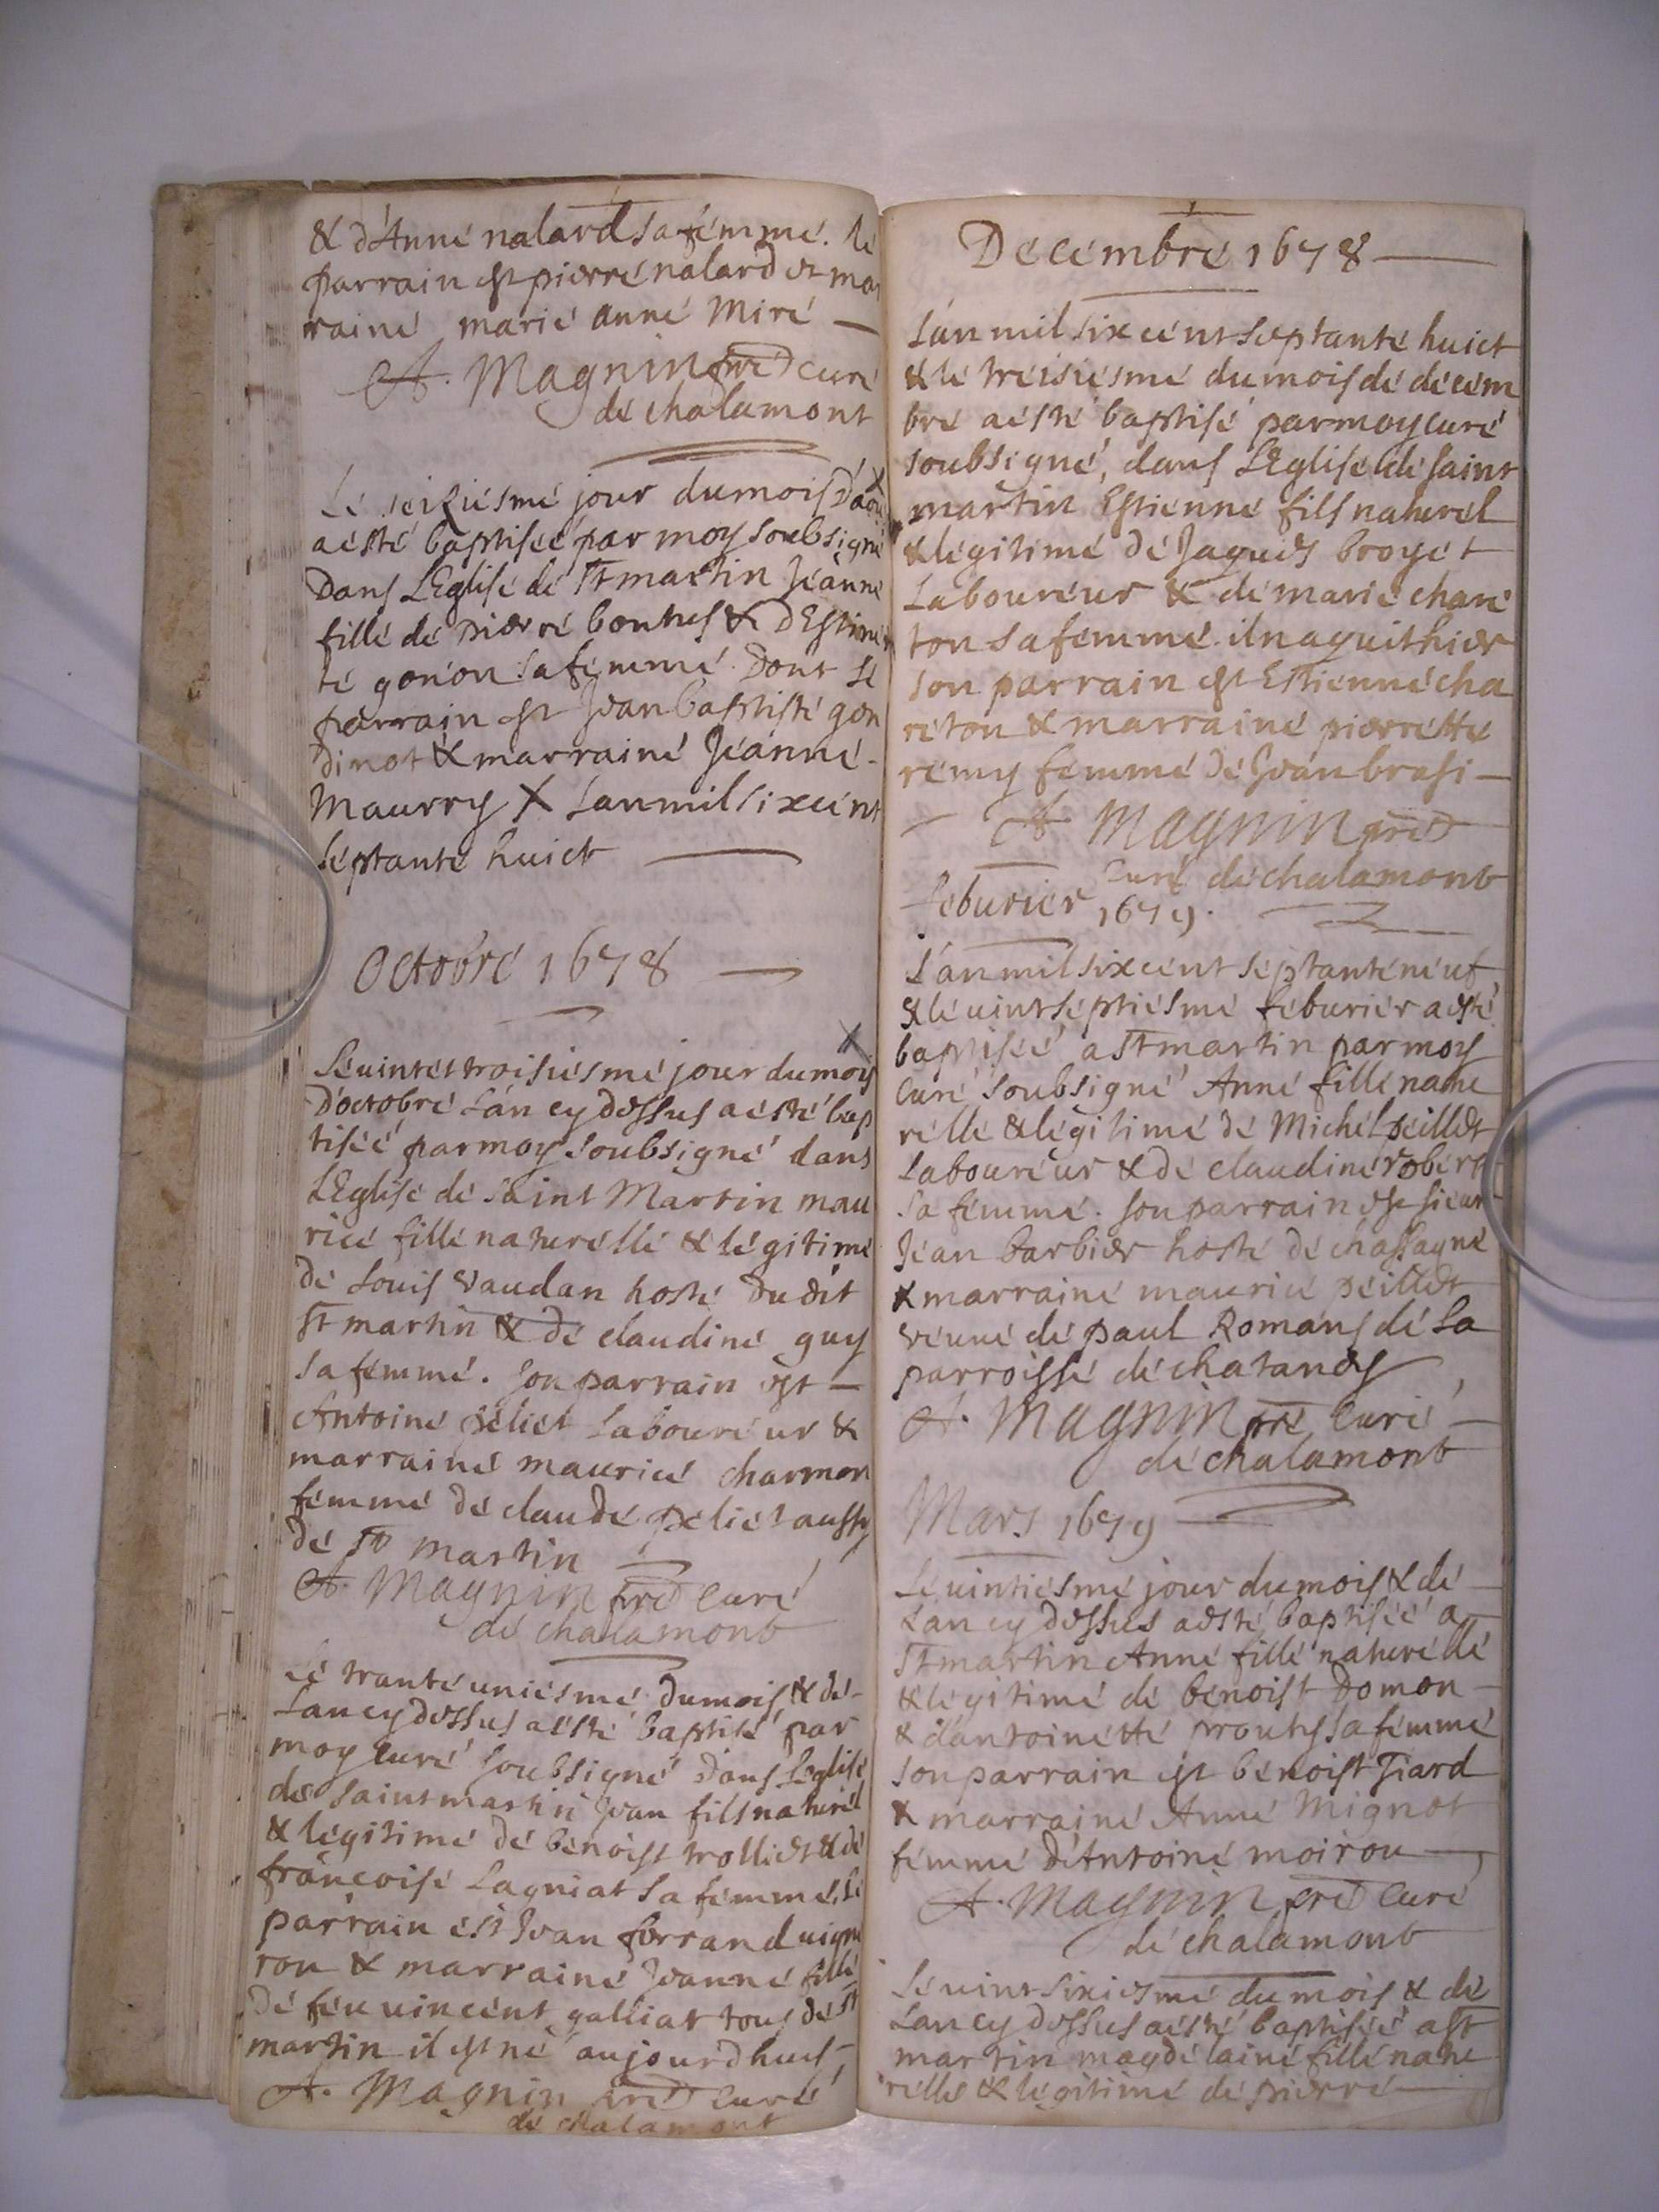 & d'Anne nalard sa femme. le
parrain est pierre nalard et mar
raine marie anne Miré —
A. Magnin pre curé
de chalamont
Le seiziesme jour du mois d'aou
a esté baptisée par moy soubsigné
Dans L'Eglise de St martin Jeanne
fille de pierre bontus & D'Estien
te gonon sa femme. Dont Le
parrain est Jean baptiste gon
dinot & marraine Jeanne -
Maurry X L'an mil six cent
septante huict —
Octobre 1678 —
Le vint et troisiesme jour du mois
D'octobre L'an cy dessus a esté bap
tisée par moy soubsigné dans
L'Eglise de Saint Martin mau
rice fille naturelle & légitime
de Louis Vaudan hoste Du dit
St martin & de claudine guy
sa femme. son parrain est —
Antoine peliet Laboureur &
marraine maurice charmon
femme de claude peliet aussy
de St martin
A. Magnin pre Curé
de chalamont
Le trante uniesme du mois & de -
L'an cy dessus a esté baptisé par
moy curé soubsigné Dans L'eglise
de Saint martin Jean fils naturel
& légitime de benoist trolliet & de
françoise Lagniat sa femme, Le
parrain est Jean ferrand vigne
ron & marraine Jeanne fille
De feu vincent galliat tous de St
martin il est né aujourdhuy -
A. Magnin pre Curé
de chalamont
Decembre 1678 —
L'an mil six cent septante huict
& le treisiesme du mois de décem
bre a esté baptisé par moy curé
soubsigné, dans L'Eglise de saint
martin Estienne fils naturel
& légitime de Jaques broyet
Laboureur & de marie chare
ton sa femme. il naquit hier
son parrain est Estienne cha
reton & marraine pierrette
remy femme de Jean brasi —
A. Magnin pre
Curé de chalamont
feburier 1679.
L'an mil six cent septante neuf
& le vint septiesme feburier a esté
baptisée a St martin par moy
Curé soubsigné Anne fille natu
relle & légitime de Michel peillet
Laboureur & de claudine robert
sa femme. son parrain est sieur
Jean barbier hoste de chassagne
& marraine maurice peillet
veuve de paul Romans de La
parroisse de chatanay
A. Magnin pre Curé —
de chalamont
Mars 1679 —
Le vintiesme jour du mois & de —
L'an cy dessus a esté baptisée a
St martin Anne fille naturelle
& légitime de benoist Domon —
& d'antoinette prouty sa femme
son parrain est benoist Tiard
& marraine Anne Mignot
femme d'Antoine moirou —
A. Magnin pre Curé
de chalamont
Le vint sixiesme du mois & de
L'an cy dessus a esté baptisée a St
martin magdelaine fille natu
relle & légitime de pierre —